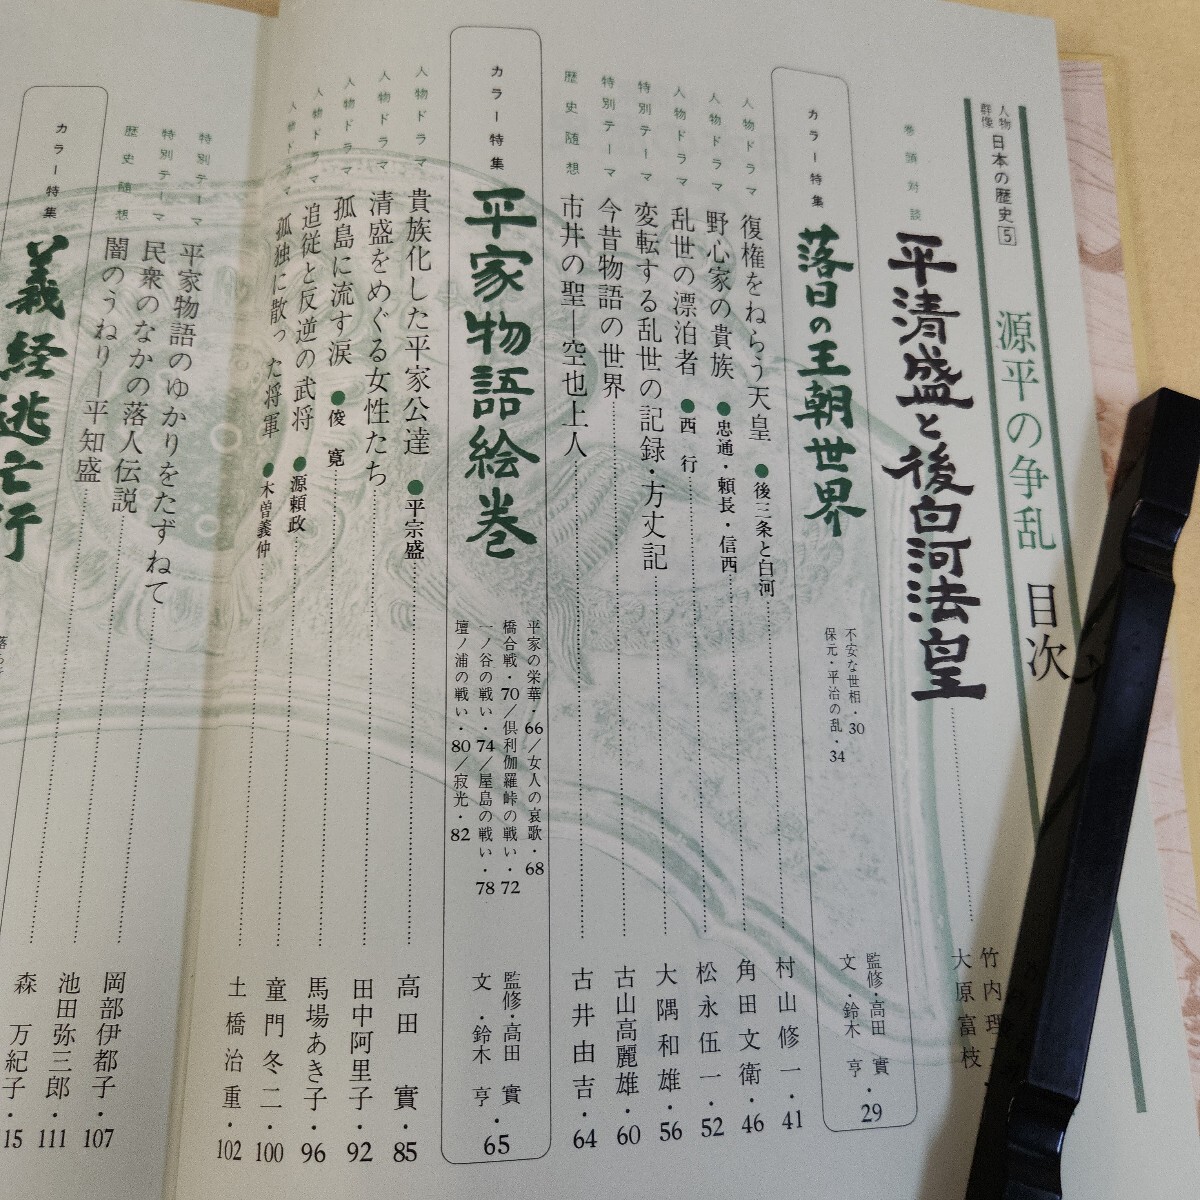 人物群像 日本の歴史 5
源平の争乱 目次
巻頭対談
平清盛と後白河法皇
竹内理
大原富枝
カラー特集
落日の王朝世界
不安な世相・30
保元・平治の乱・34
監修・高田 實
文・鈴木 亨・29
人物ドラマ 復権をねらう天皇 ●後三条と白河 村山修一・41
人物ドラマ 野心家の貴族 ●忠通・頼長・信西 角田文衛・46
人物ドラマ 乱世の漂泊者 ●西行 松永伍一・52
特別テーマ 変転する乱世の記録・方丈記 大隅和雄・56
特別テーマ 今昔物語の世界 古山高麗雄・60
歴史随想 市井の聖―空也上人 古井由吉・64
カラー特集
平家物語絵巻
平家の栄華・66/女人の哀歌・68
橋合戦・70/倶利伽羅峠の戦い・72
一ノ谷の戦い・74/屋島の戦い・78
壇ノ浦の戦い・80/寂光・82
監修・高田 實
文・鈴木 亨・65
人物ドラマ 貴族化した平家公達 ●平宗盛 高田 實・85
人物ドラマ 清盛をめぐる女性たち 田中阿里子・92
人物ドラマ 孤島に流す涙 ●俊 寛 馬場あき子・96
人物ドラマ 追従と反逆の武将 ●源頼政 童門冬二・100
人物ドラマ 孤独に散った将軍 ●木曽義仲 土橋治重・102
特別テーマ 平家物語のゆかりをたずねて 岡部伊都子・107
特別テーマ 民衆のなかの落人伝説 池田弥三郎・111
歴史随想 闇のうねり―平知盛 森 万紀子・115
カラー特集
義経逃亡行